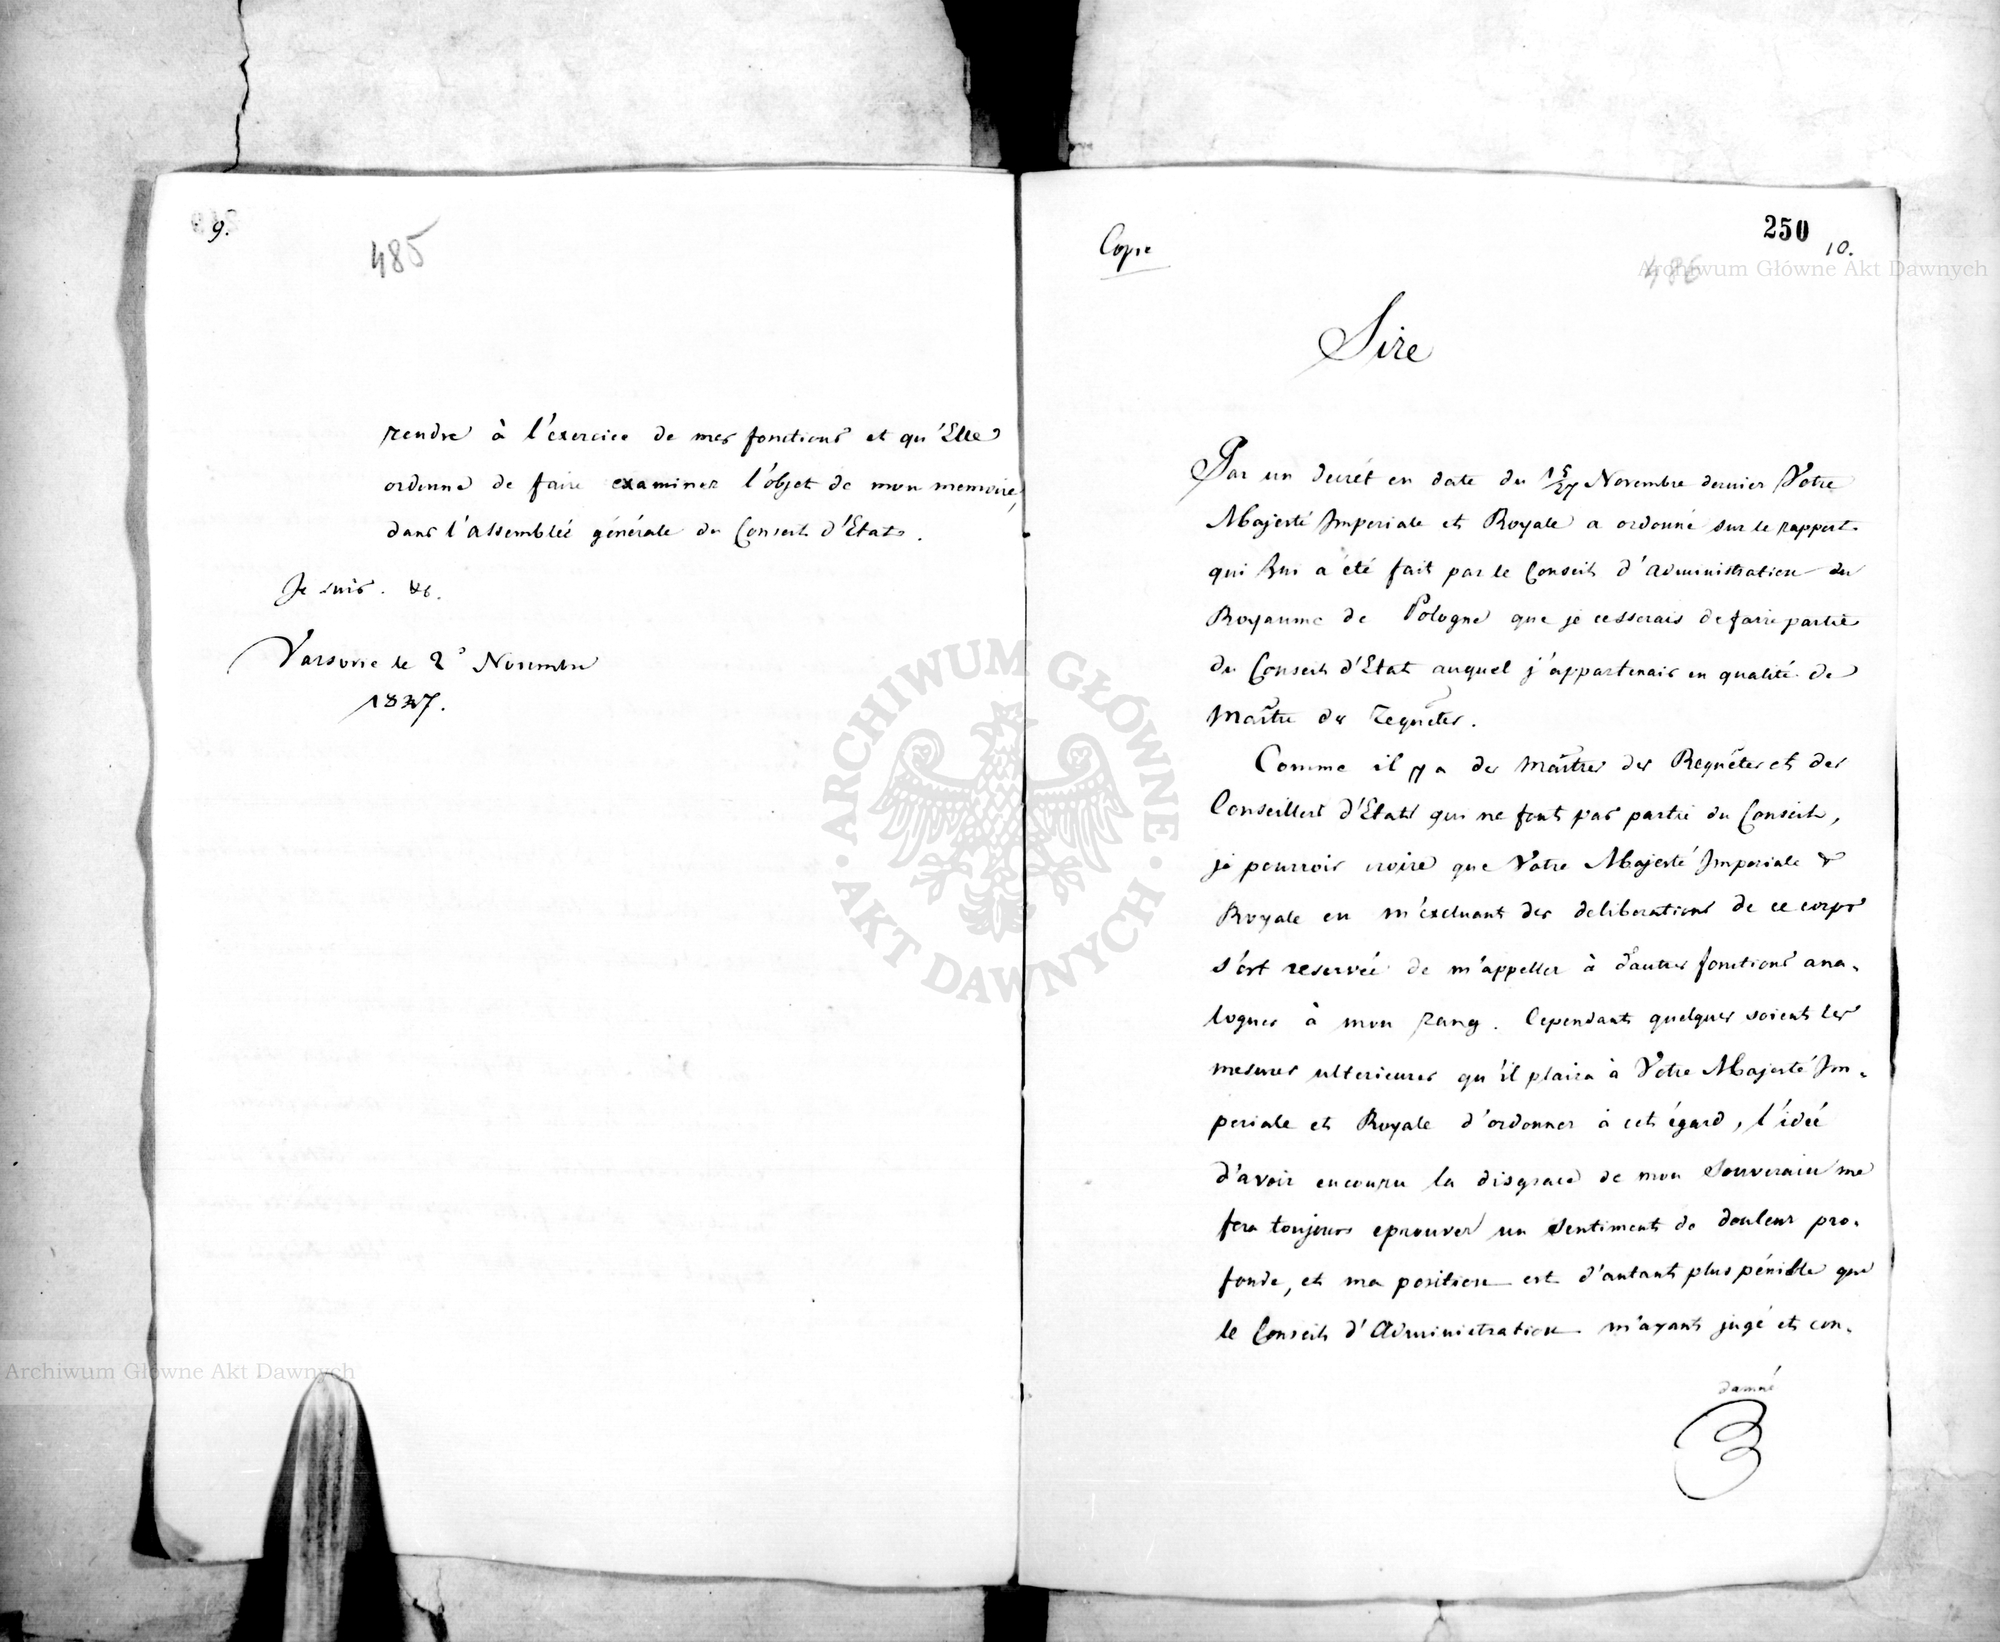 9.
485
rendre à l'exercice de mes fonctions et qu'Elle
ordonne de faire examiner l'objet de mon memoire,
dans l'Assemblée générale du Conseil d'Etat.
Je suis. &c.
Varsovie le 2 Novembre
1837.
Copie
250
10.
486
Sire
Par un decrét en date du 15/27 Novembre dernier Votre
Majesté Imperiale et Royale a ordonné sur le rapport
qui Lui a été fait par le Conseil d'Administration du
Royaume de Pologne que je cesserais de faire partie
du Conseil d'Etat auquel j'appartenais en qualité de
Maître des requêtes.
Comme il y a des Maîtres des Requêtes et des
Conseillers d'Etat qui ne font pas partie du Conseil,
je pourrois croire que Votre Majesté Imperiale &
Royale en m'excluant des deliberations de ce corps
s'est reservée de m'appeller à d'autres fonctions ana-
logues à mon rang. Cependant quelques soient les
mesures ulterieures qu'il plaira à Votre Majesté Im-
periale et Royale d'ordonner à cet égard, l'idée
d'avoir encouru la disgrace de mon Souverain me
fera toujours eprouver un sentiment de douleur pro-
fonde, et ma position est d'autant plus pénible que
le Conseil d'Administration m'ayant jugé et con-
damné
Archiwum Główne Akt Dawnych
ARCHIWUM GŁÓWNE
AKT DAWNYCH
Archiwum Główne Akt Dawnych